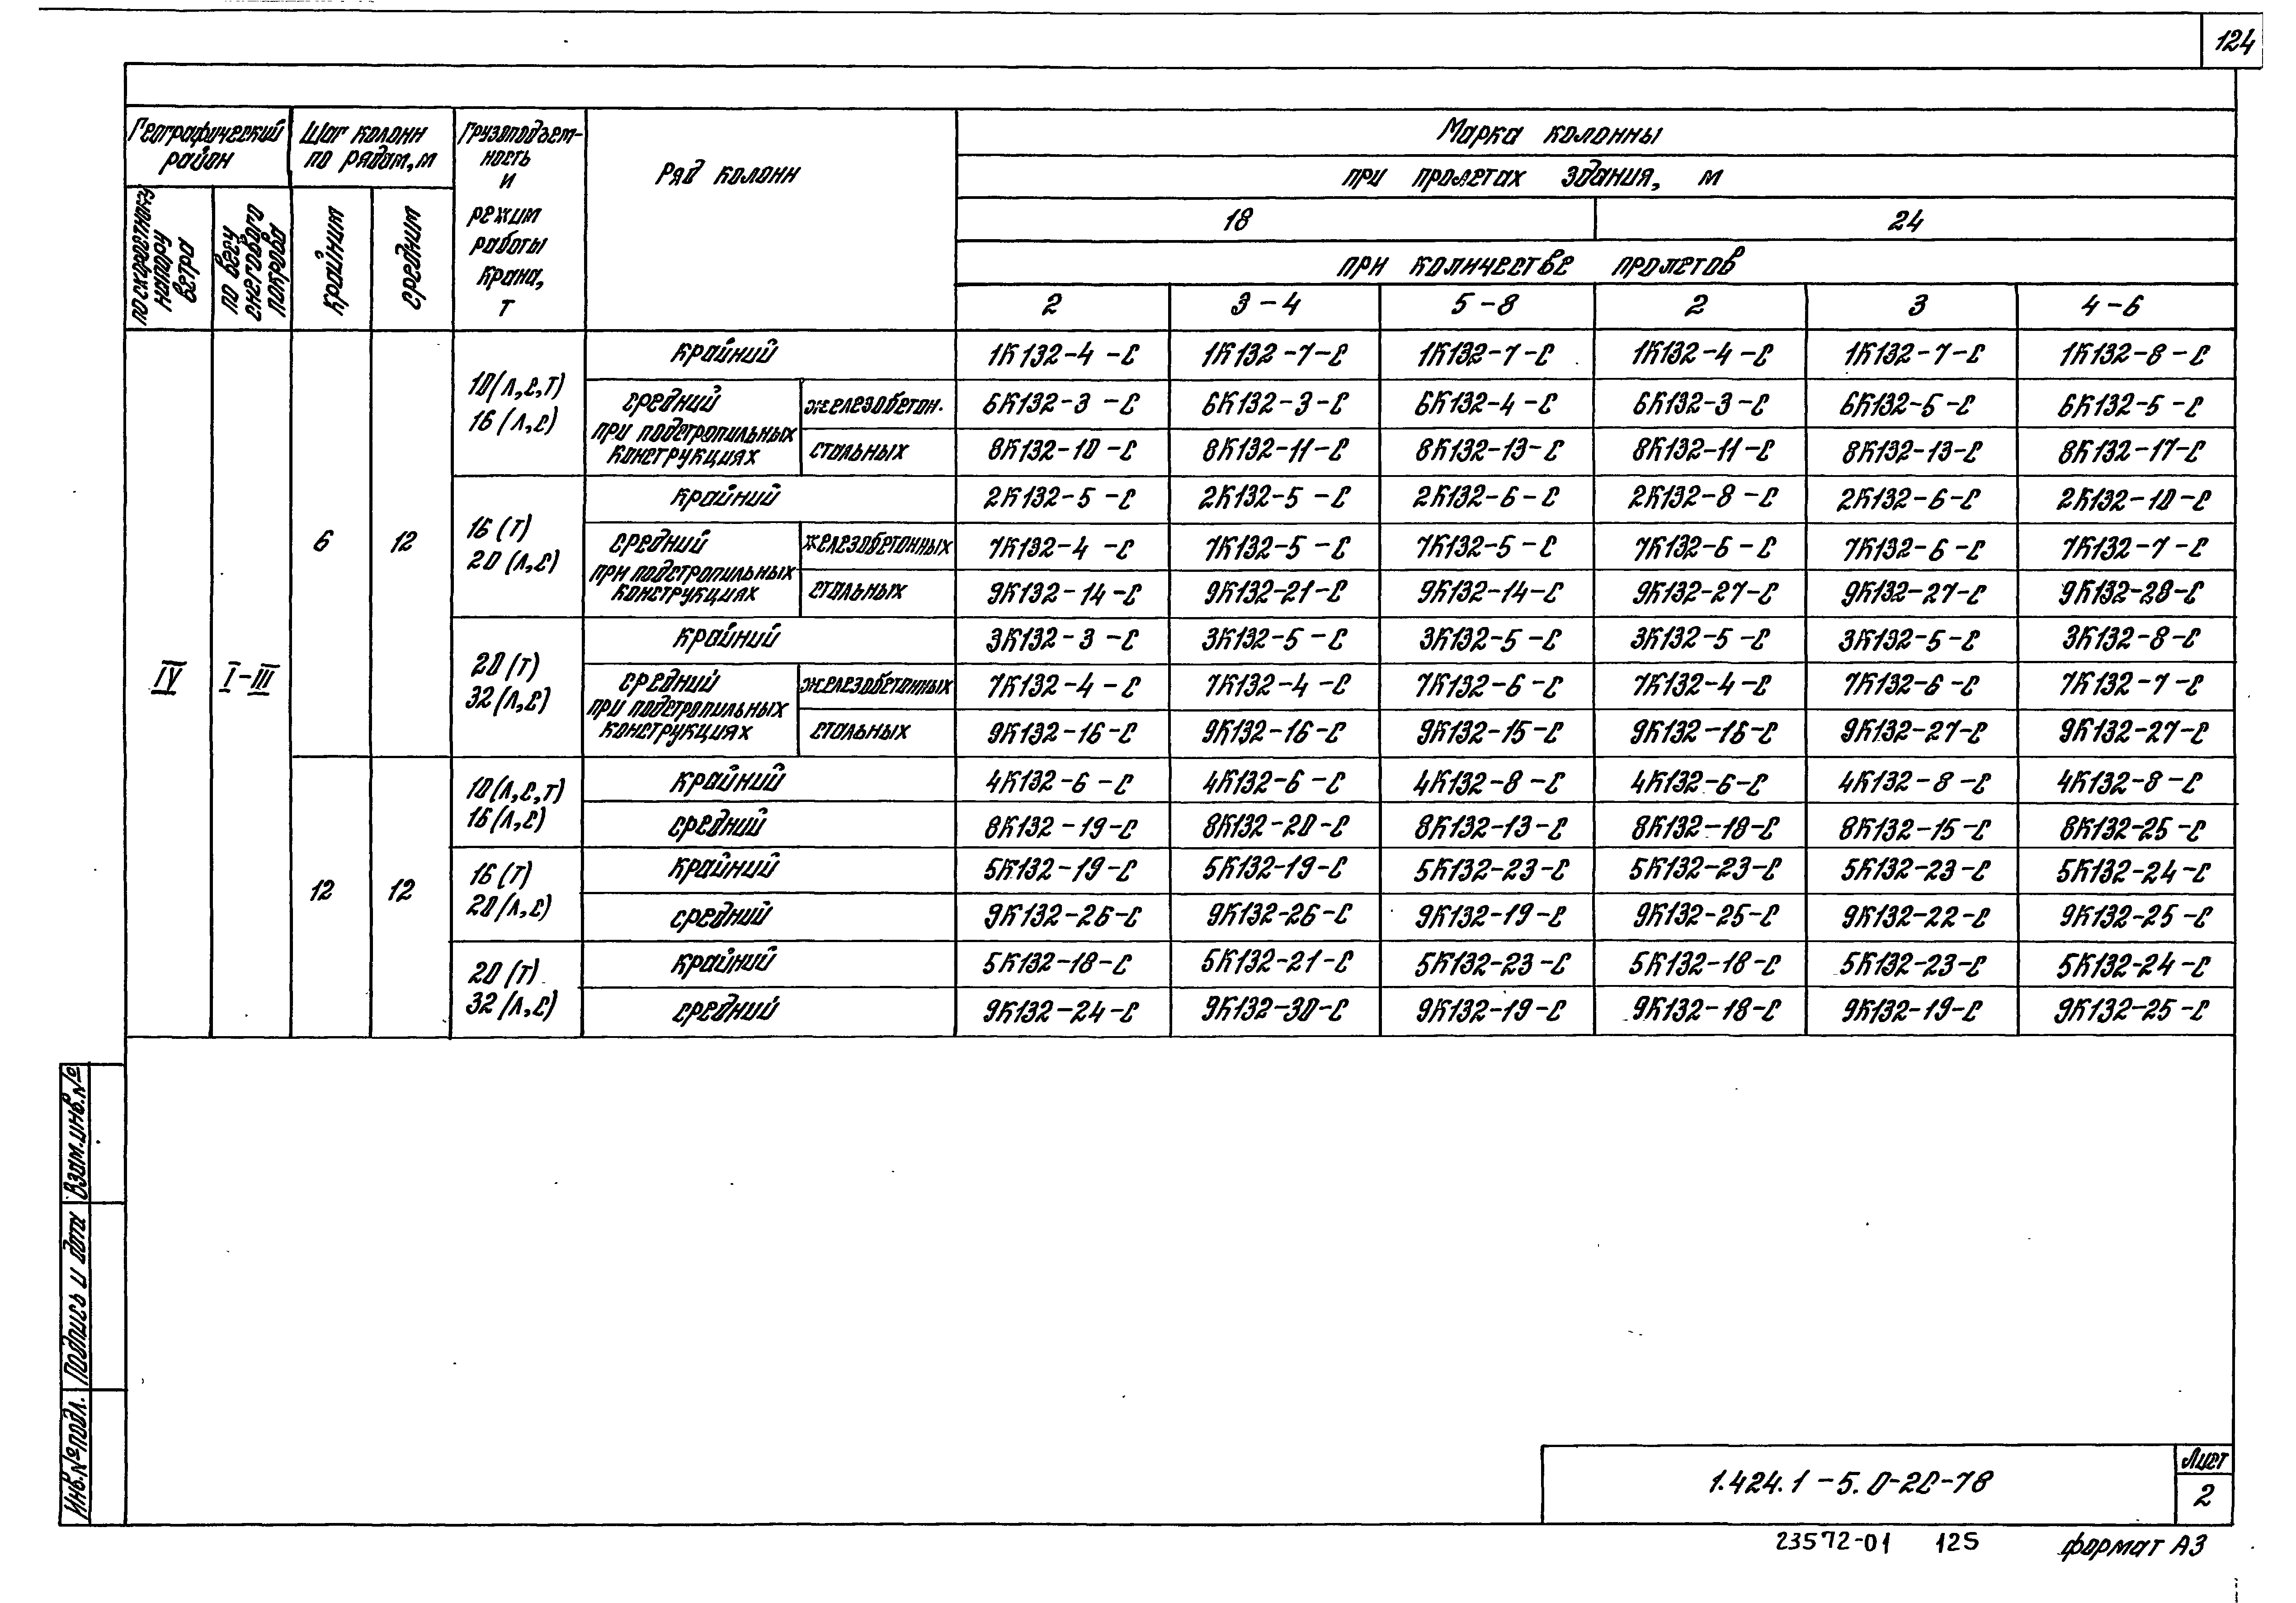 124
Географический район
Шаг колонн по рядам, м
Грузоподъем-
ность
и
режим
работы
крана,
т
Ряд колонн
Марка колонны
при пролетах здания, м
по скоростному напору ветра
по весу снегового покрова
крайним
средним
18 24
при количестве пролетов
2 3-4 5-8 2 3 4-6
IV I-III 6 12
10(Л,С,Т)
16(Л,С)
крайний 1К132-4-С 1К132-7-С 1К132-7-С 1К132-4-С 1К132-7-С 1К132-8-С
средний при подстропильных конструкциях
железобетон. 6К132-3-С 6К132-3-С 6К132-4-С 6К132-3-С 6К132-5-С 6К132-5-С
стальных 8К132-10-С 8К132-11-С 8К132-13-С 8К132-11-С 8К132-13-С 8К132-17-С
16(Т)
20(Л,С)
крайний 2К132-5-С 2К132-5-С 2К132-6-С 2К132-8-С 2К132-6-С 2К132-10-С
средний при подстропильных конструкциях
железобетонных 7К132-4-С 7К132-5-С 7К132-5-С 7К132-6-С 7К132-6-С 7К132-7-С
стальных 9К132-14-С 9К132-21-С 9К132-14-С 9К132-27-С 9К132-27-С 9К132-28-С
20(Т)
32(Л,С)
крайний 3К132-3-С 3К132-5-С 3К132-5-С 3К132-5-С 3К132-5-С 3К132-8-С
средний при подстропильных конструкциях
железобетонных 7К132-4-С 7К132-4-С 7К132-6-С 7К132-4-С 7К132-6-С 7К132-7-С
стальных 9К132-16-С 9К132-16-С 9К132-15-С 9К132-16-С 9К132-27-С 9К132-27-С
12 12
10(Л,С,Т)
16(Л,С)
крайний 4К132-6-С 4К132-6-С 4К132-8-С 4К132-6-С 4К132-8-С 4К132-8-С
средний 8К132-19-С 8К132-20-С 8К132-13-С 8К132-18-С 8К132-15-С 8К132-25-С
16(Т)
20(Л,С)
крайний 5К132-19-С 5К132-19-С 5К132-23-С 5К132-23-С 5К132-23-С 5К132-24-С
средний 9К132-26-С 9К132-26-С 9К132-19-С 9К132-25-С 9К132-22-С 9К132-25-С
20(Т)
32(Л,С)
крайний 5К132-18-С 5К132-21-С 5К132-23-С 5К132-18-С 5К132-23-С 5К132-24-С
средний 9К132-24-С 9К132-30-С 9К132-19-С 9К132-18-С 9К132-19-С 9К132-25-С
Взам.инв.№
Подпись и дата
Инв.№подл.
1.424.1-5.0-2С-78
Лист
2
23572-01 125 формат А3